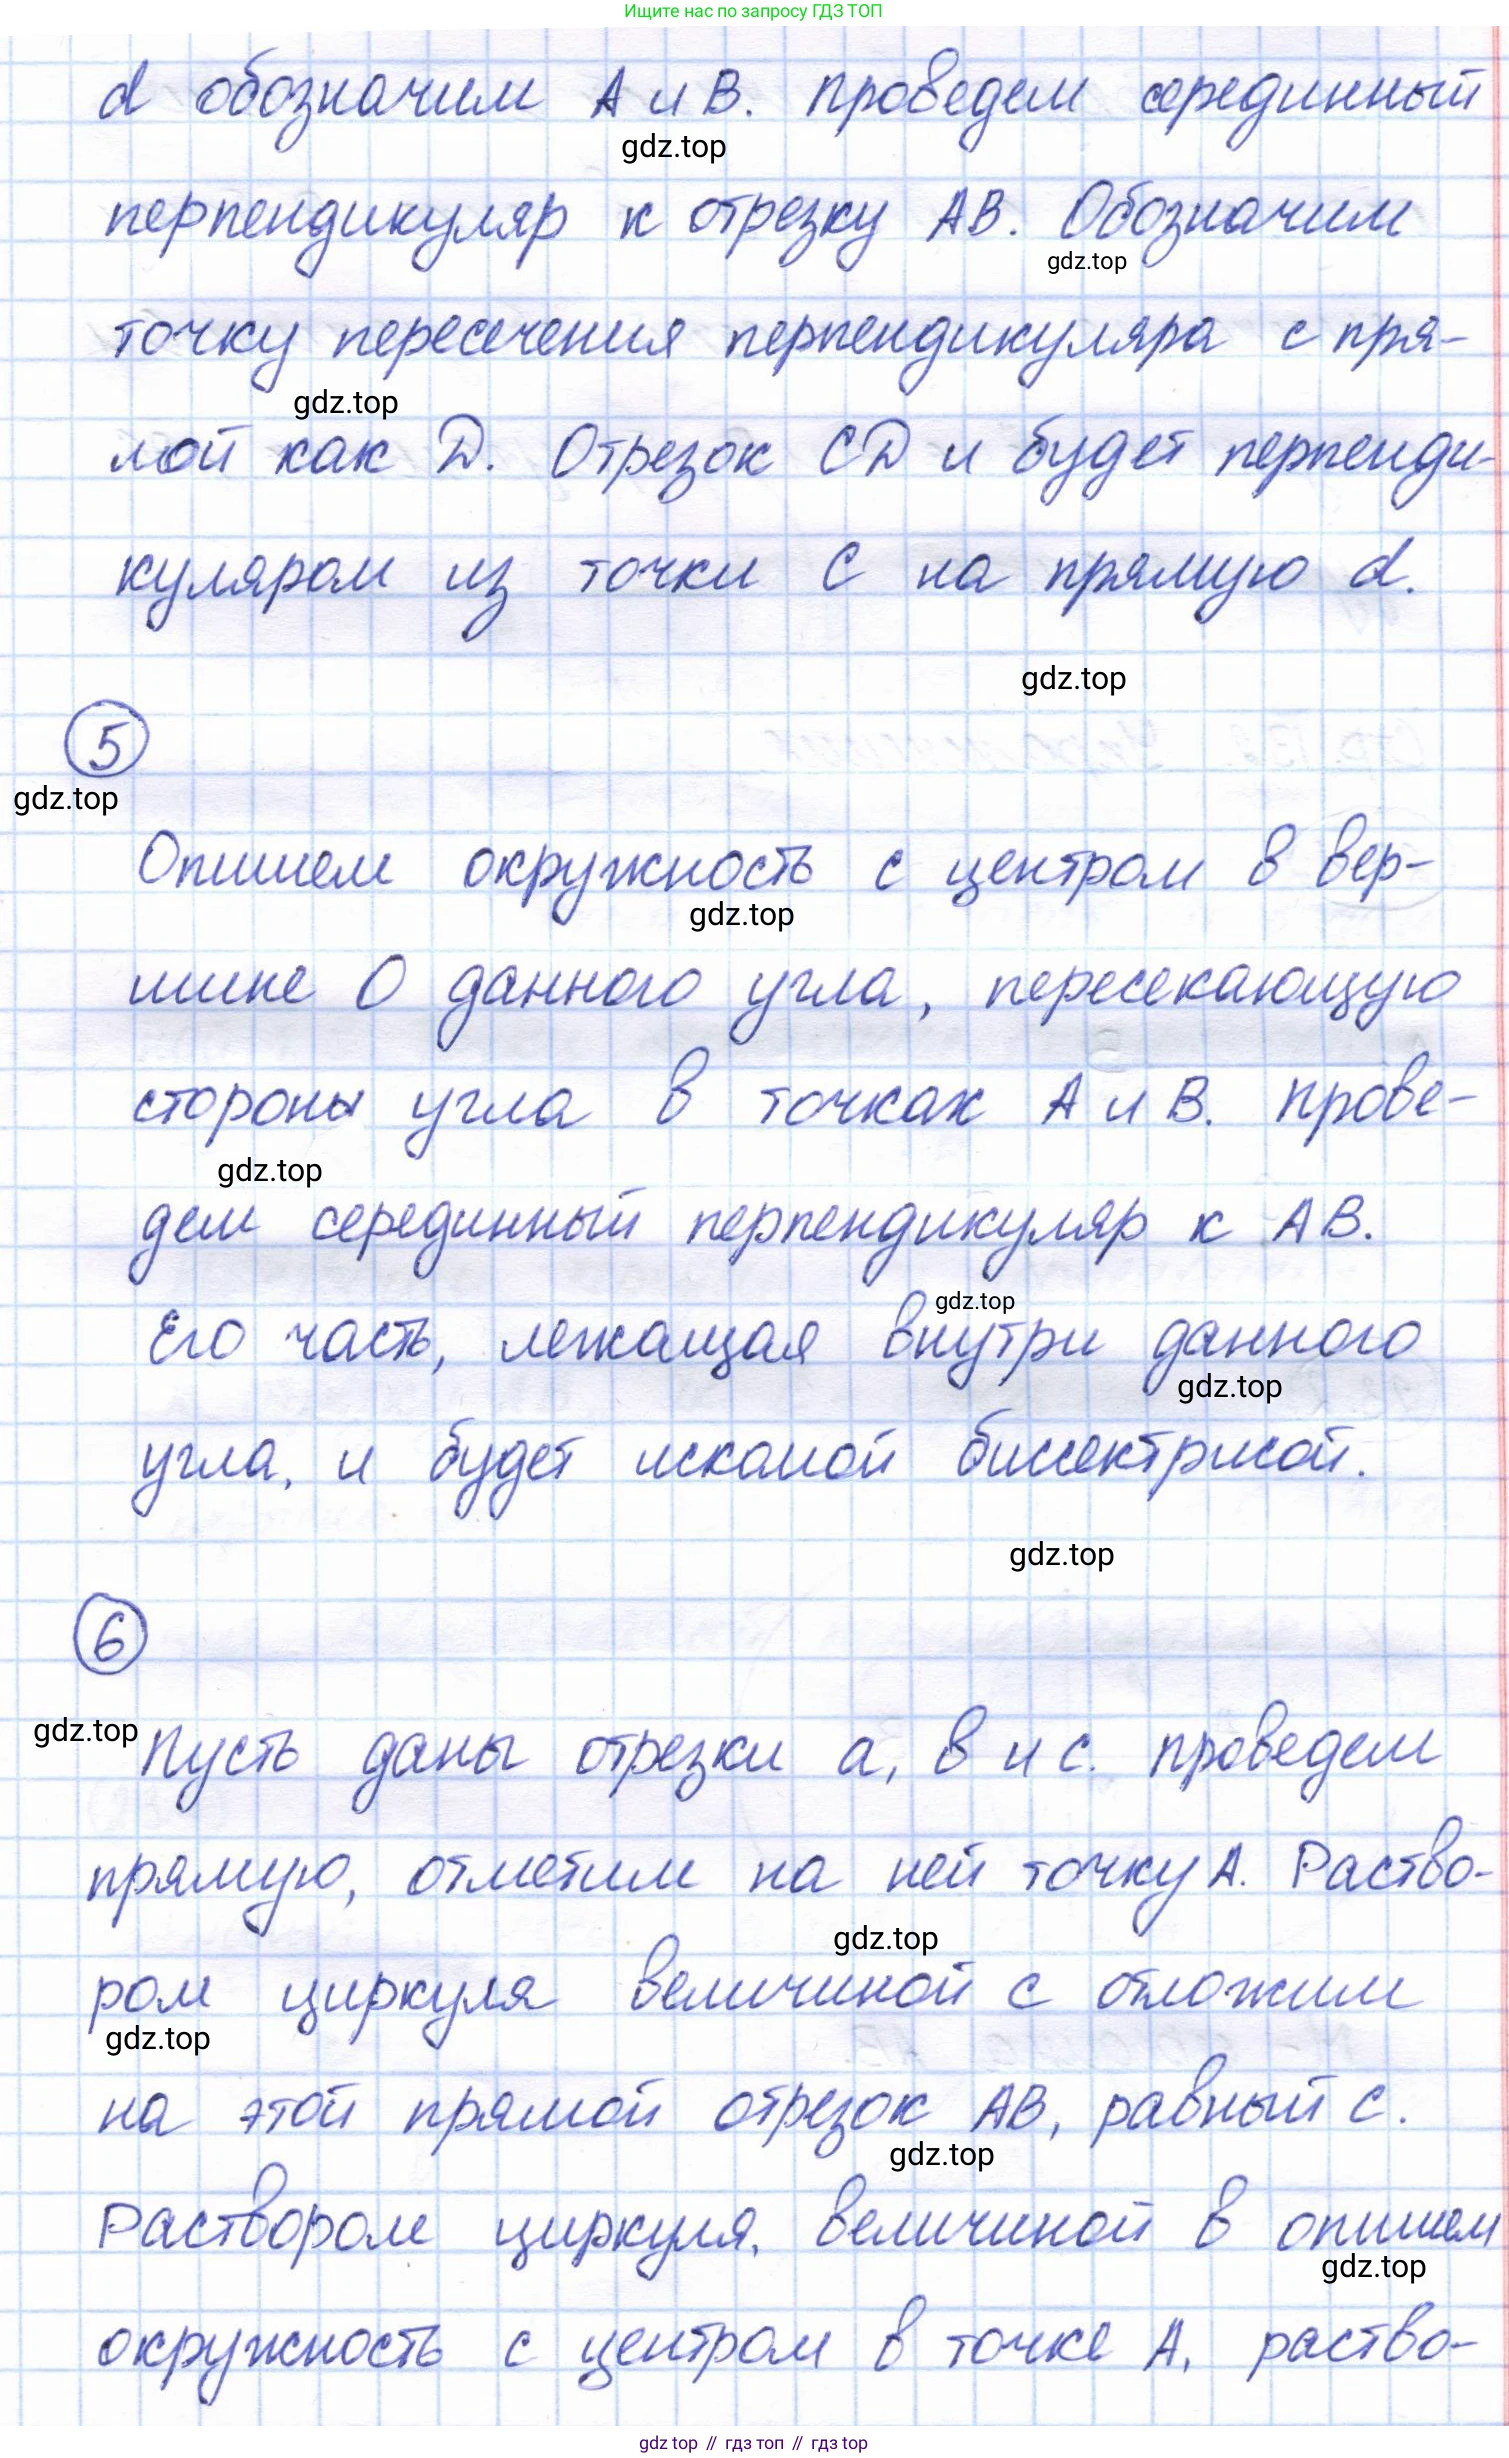 Ищите нас по запросу ГДЗ ТОП
d обозначим A и B. проведем серединный
gdz.top
перпендикуляр к отрезку AB. Обозначим
gdz.top
точку пересечения перпендикуляра с пря-
gdz.top
мой как D. Отрезок CD и будет перпенди-
куляром из точки C на прямую d.
gdz.top
5
gdz.top
Опишем окружность с центром в вер-
gdz.top
шине O данного угла, пересекающую
стороны угла в точках A и B. прове-
gdz.top
дем серединный перпендикуляр к AB.
gdz.top
Его часть, лежащая внутри данного
gdz.top
угла, и будет искомой биссектрисой.
gdz.top
6
gdz.top
Пусть даны отрезки a, в и с. проведем
прямую, отметим на ней точку A. Раство-
gdz.top
ром циркуля величиной с отложим
gdz.top
на этой прямой отрезок AB, равный с.
gdz.top
Раствором циркуля, величиной в опишем
gdz.top
окружность с центром в точке A, раство-
gdz.top // гдз топ // гдз top